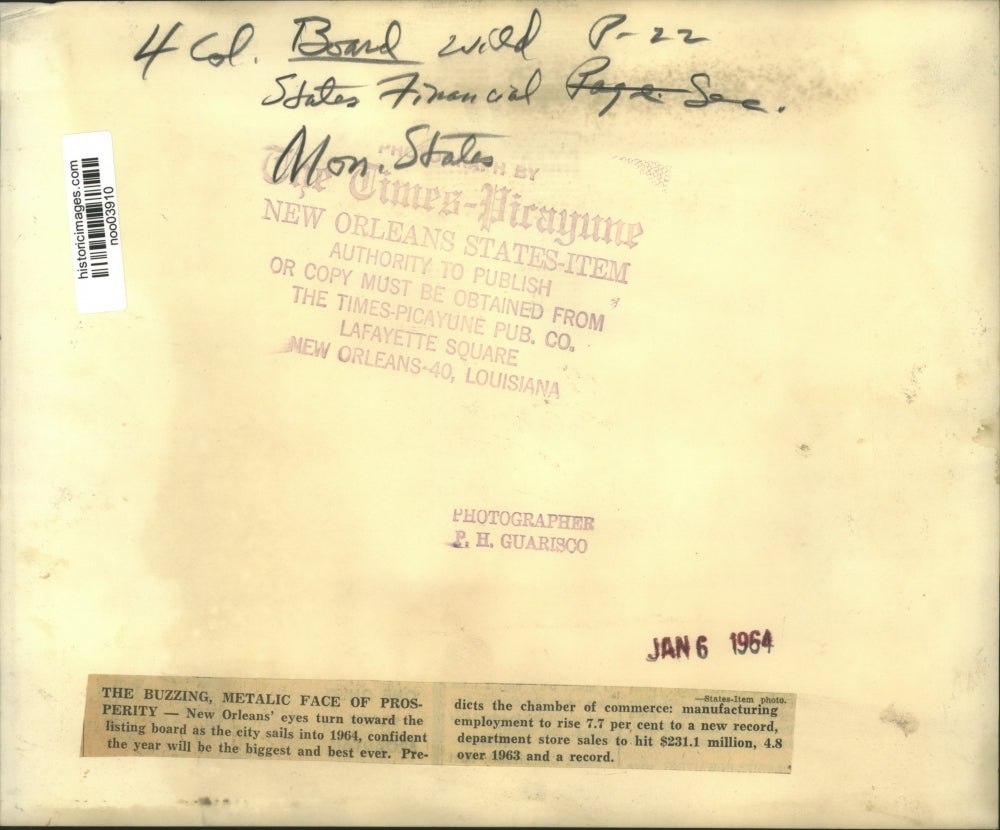 4 Col. Board wild P-22
States Financial Page. Sec.
Mon. States
historicimages.com
noo03910
PHOTOGRAPH BY
The Times-Picayune
NEW ORLEANS STATES-ITEM
AUTHORITY TO PUBLISH
OR COPY MUST BE OBTAINED FROM
THE TIMES-PICAYUNE PUB. CO.
LAFAYETTE SQUARE
NEW ORLEANS-40, LOUISIANA
PHOTOGRAPHER
P. H. GUARISCO
JAN 6 1964
THE BUZZING, METALIC FACE OF PROS-
PERITY — New Orleans' eyes turn toward the
listing board as the city sails into 1964, confident
the year will be the biggest and best ever. Pre-
—States-Item photo.
dicts the chamber of commerce: manufacturing
employment to rise 7.7 per cent to a new record,
department store sales to hit $231.1 million, 4.8
over 1963 and a record.